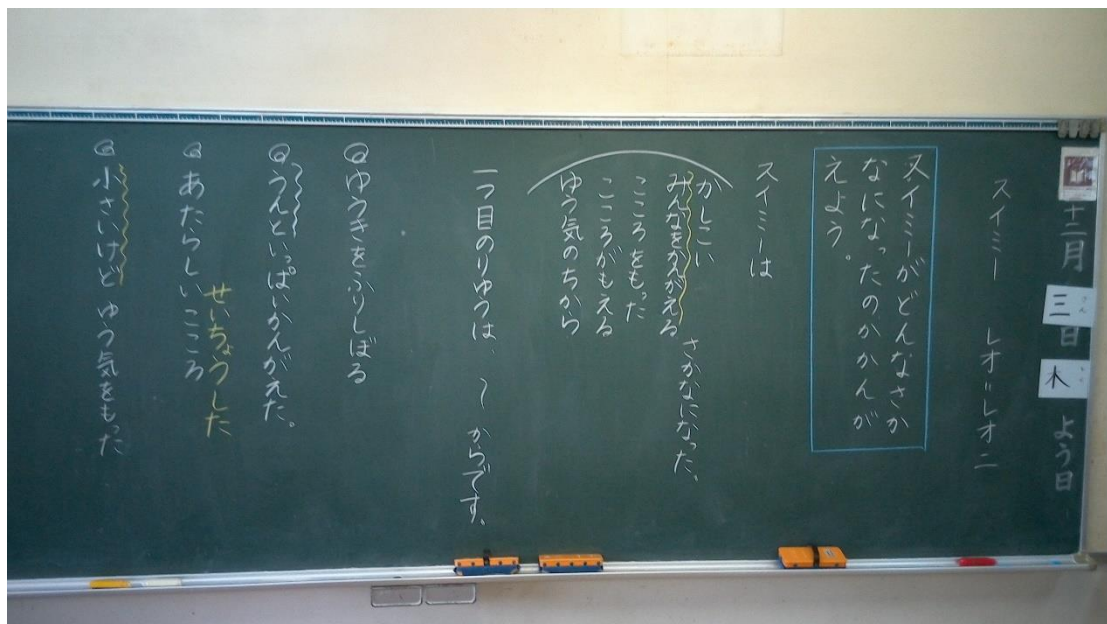 十二月三日木よう日
スイミー レオ=レオニ
スイミーがどんなさか
なになったのかかんが
えよう。
スイミーは
かしこい
みんなをかんがえる さかなになった、
こころをもった
こころがもえる
ゆう気のちから
一つ目のりゆうは、〜からです、
ゆうきをふりしぼる
うんといっぱいかんがえた。
せいちょうした
あたらしいこころ
小さいけど ゆう気をもった